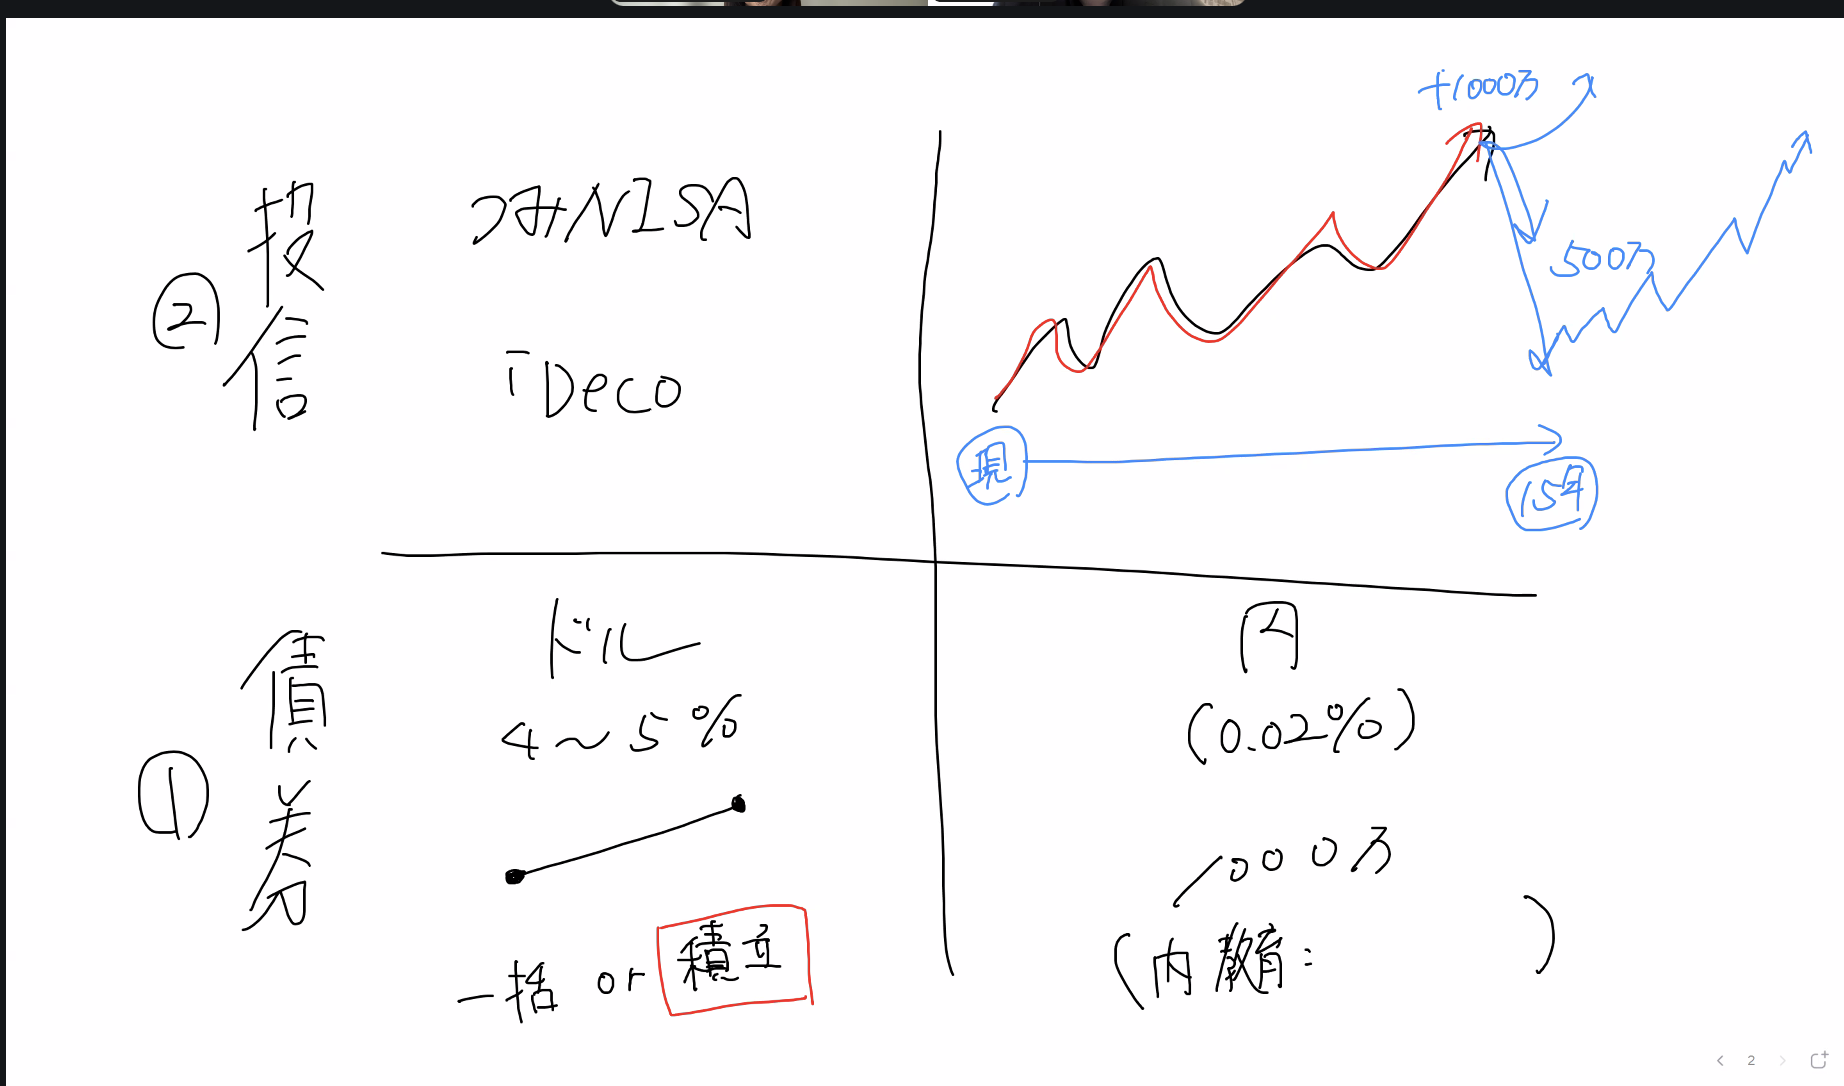 ② 投信
つみNISA
iDeco
+1000万
500万
現
15年
① 債券
ドル
4～5%
一括 or 積立
円
(0.02%)
1000万
(内 教育: )
2